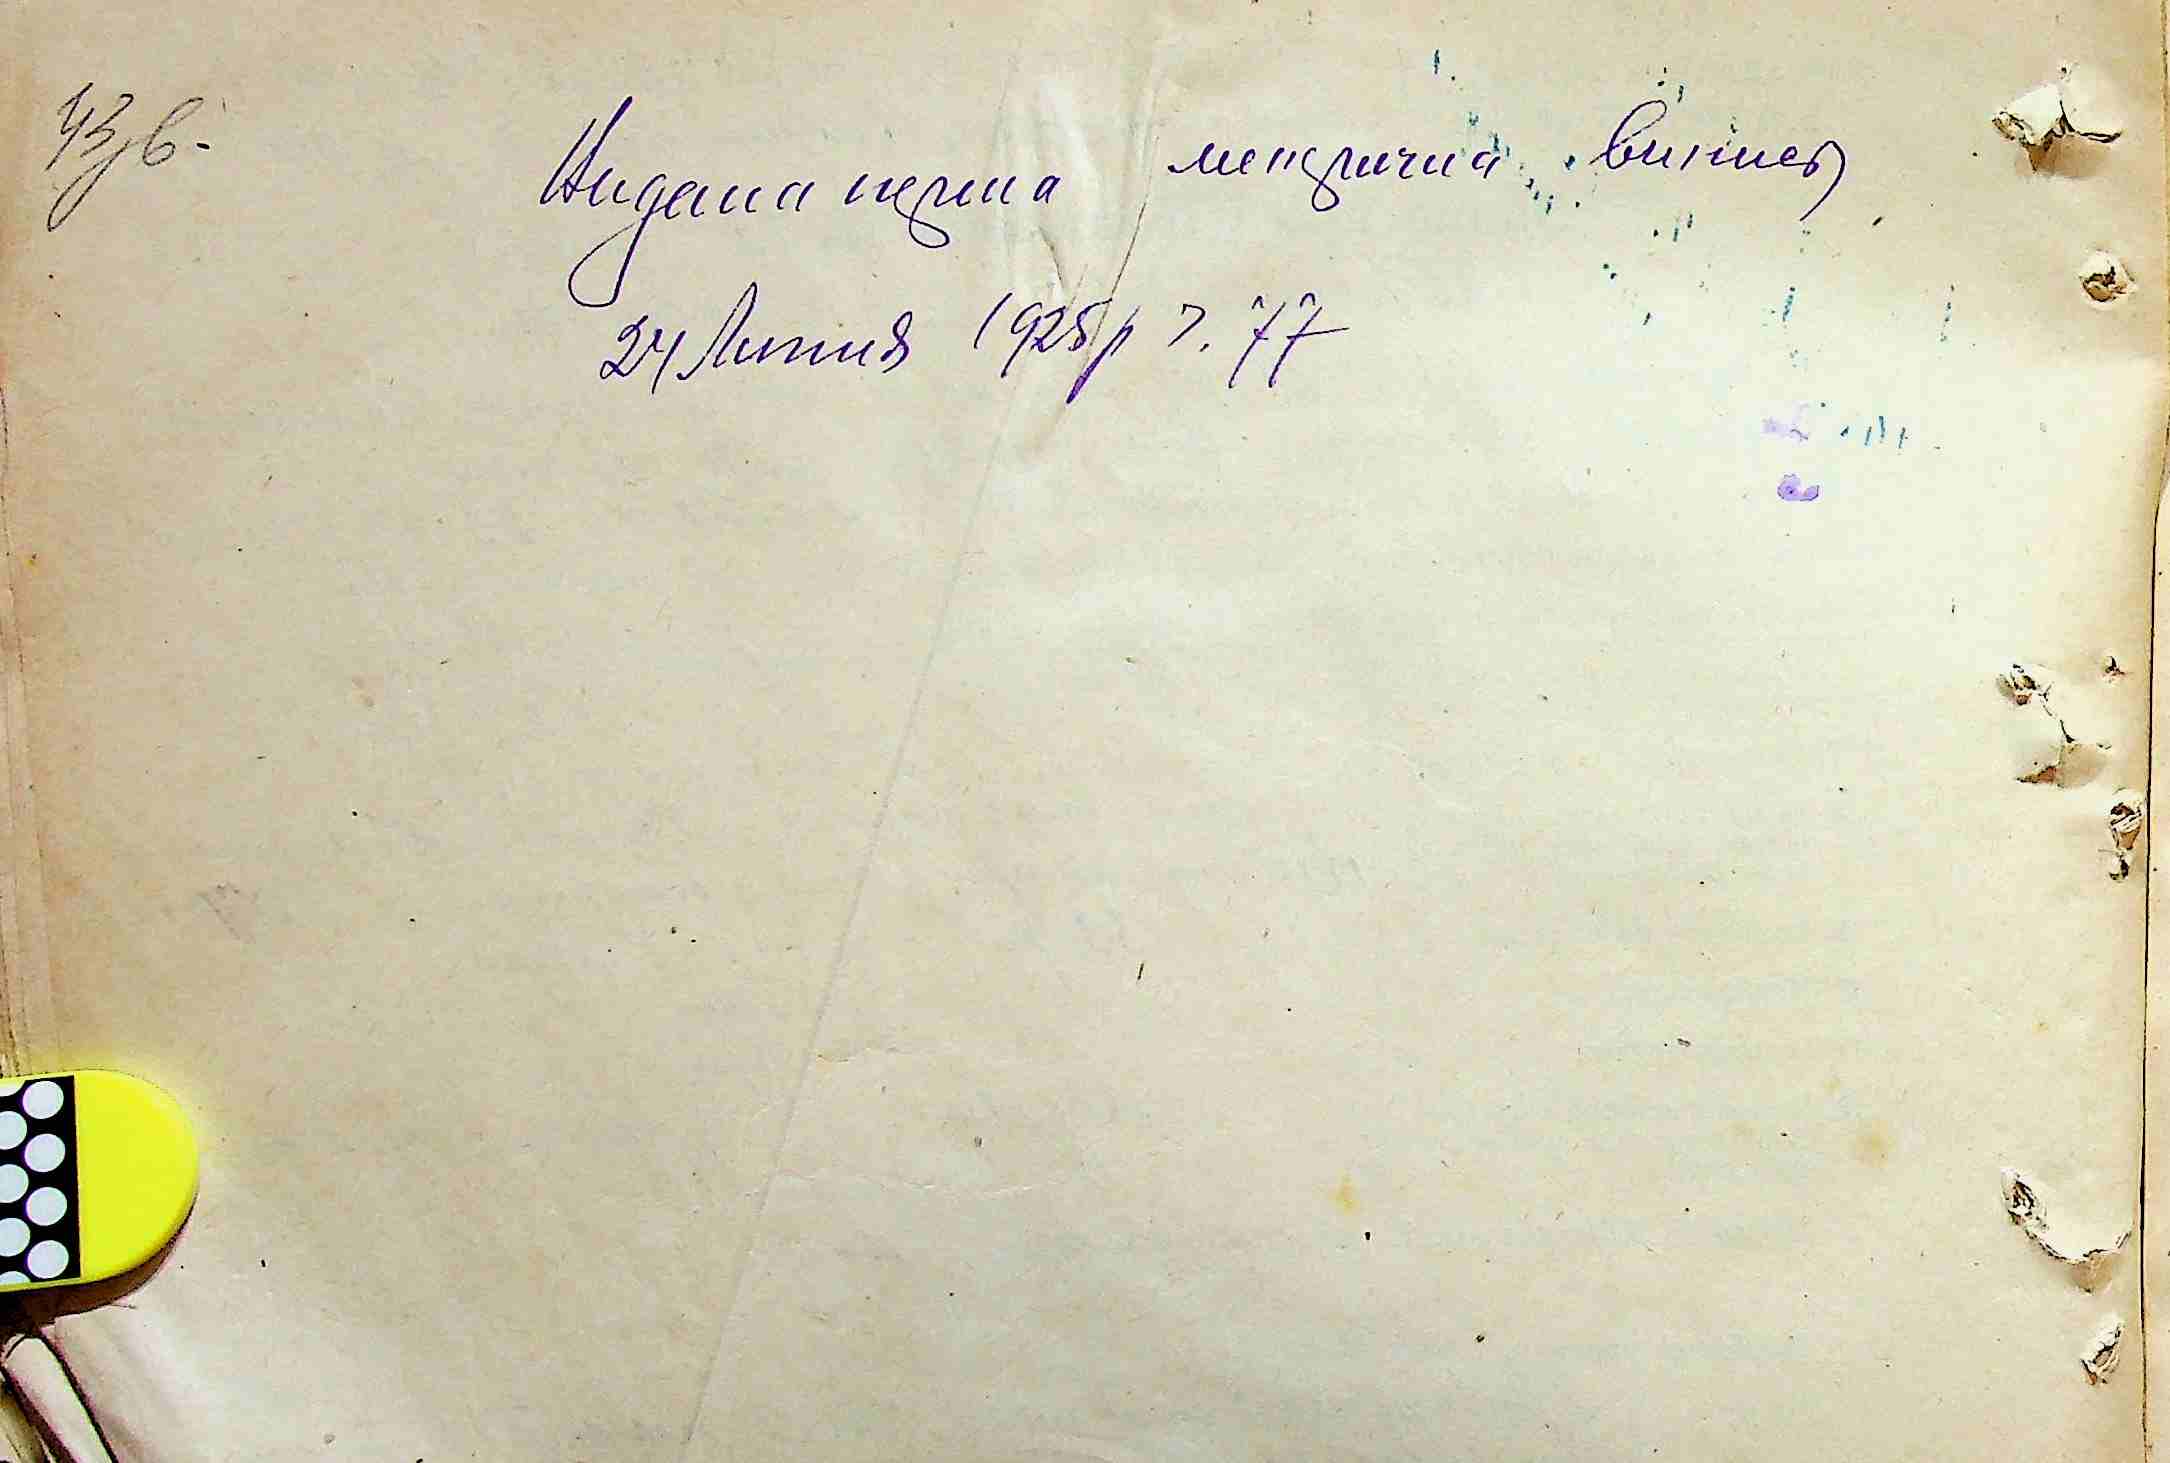 43зв.
Видана перша метрична випись
24 Липня 1925 р > . 77